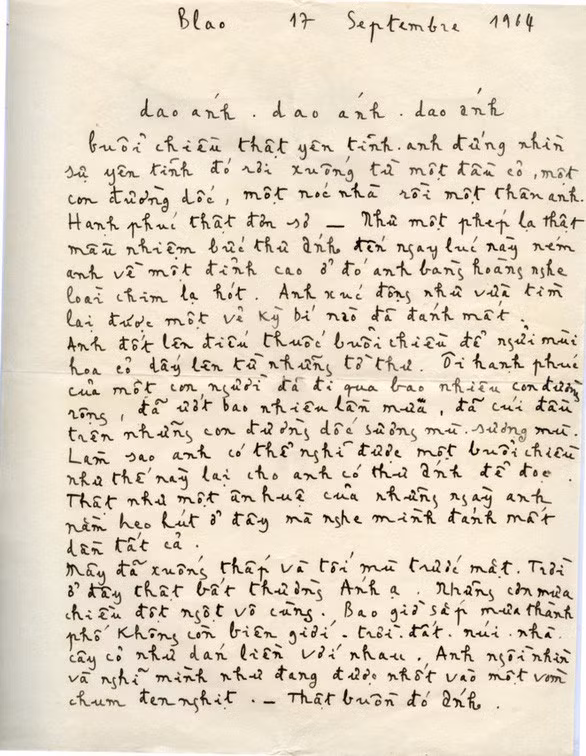 Blao 17 Septembre 1964
dao ánh . dao ánh . dao ánh
buổi chiều thật yên tĩnh. anh đứng nhìn
sự yên tĩnh đó rơi xuống từ một đầu cỏ, một
con đường dốc, một nóc nhà rồi một thân anh.
Hạnh phúc thật đơn sơ _ Như một phép lạ thật
mầu nhiệm bức thư Ánh đến ngay lúc này ném
anh về một đỉnh cao ở đó anh bàng hoàng nghe
loài chim lạ hót. Anh xúc động như vừa tìm
lại được một vẻ kỳ bí nào đã đánh mất.
Anh đốt lên điếu thuốc buổi chiều để ngửi mùi
hoa cỏ dấy lên từ những tờ thư. Ôi hạnh phúc
của một con người đã đi qua bao nhiêu con đường
rộng, đã ướt bao nhiêu lần mưa, đã cúi đầu
trên những con đường dốc sương mù. sương mù.
Làm sao anh có thể nghĩ được một buổi chiều
như thế này lại cho anh có thư Ánh để đọc.
Thật như một ân huệ của những ngày anh
nằm heo hút ở đây mà nghe mình đánh mất
dần tất cả.
Mây đã xuống thấp và tối mù trước mặt. Trời
ở đây thật bất thường Ánh ạ. Những cơn mưa
chiều đột ngột vô cùng. Bao giờ sắp mưa thành
phố không còn biên giới. trời. đất. núi. nhà.
cây cỏ như dán liền với nhau. Anh ngồi nhìn
và nghĩ mình như đang được nhốt vào một vòm
chum đen nghịt. _ Thật buồn đó Ánh.